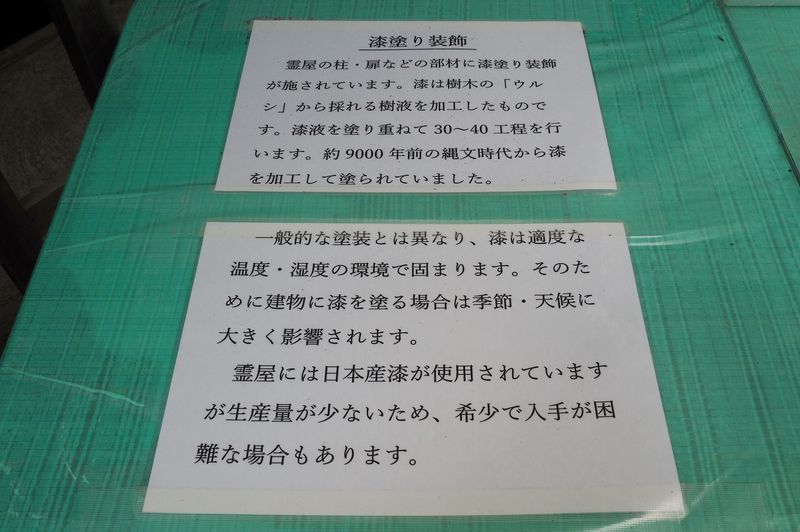 漆塗り装飾
霊屋の柱・扉などの部材に漆塗り装飾
が施されています。漆は樹木の「ウル
シ」から採れる樹液を加工したもので
す。漆液を塗り重ねて 30～40 工程を行
います。約 9000 年前の縄文時代から漆
を加工して塗られていました。
一般的な塗装とは異なり、漆は適度な
温度・湿度の環境で固まります。そのた
めに建物に漆を塗る場合は季節・天候に
大きく影響されます。
霊屋には日本産漆が使用されています
が生産量が少ないため、希少で入手が困
難な場合もあります。